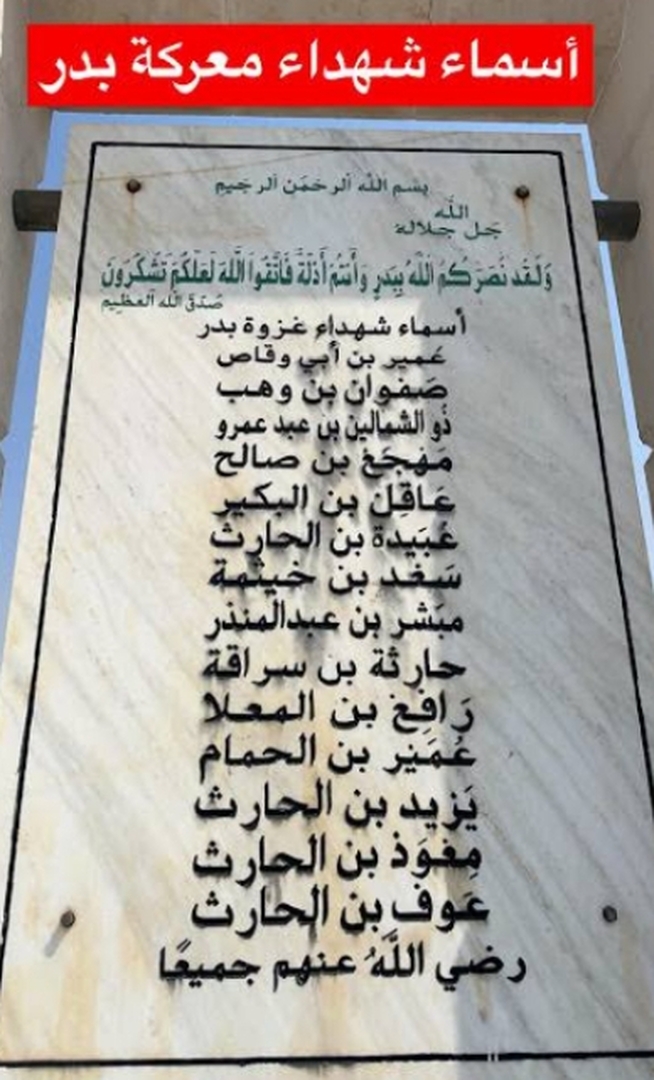 أسماء شهداء معركة بدر
بسم الله الرحمن الرحيم
الله
جل جلاله
وَلَقَد نَصَرَكُمُ اللهُ بِبَدرٍ وَأَنتُم أَذِلَّةٌ فَاتَّقُوا اللهَ لَعَلَّكُم تَشْكُرُونَ
صدق الله العظيم
أسماء شهداء غزوة بدر
عُمير بن أبي وقاص
صَفوان بن وهب
ذُو الشمالين بن عبد عمرو
مَهْجَعْ بن صالح
عَاقِل بن البكير
عُبَيدة بن الحارث
سَعْد بن خيثمة
مبَشر بن عبدالمنذر
حارثة بن سراقة
رَافِعْ بن المعلا
عُمَيْر بن الحمام
يَزيد بن الحارث
مِعْوَذ بن الحارث
عَوف بن الحارث
رضي اللَّهُ عنهم جميعًا